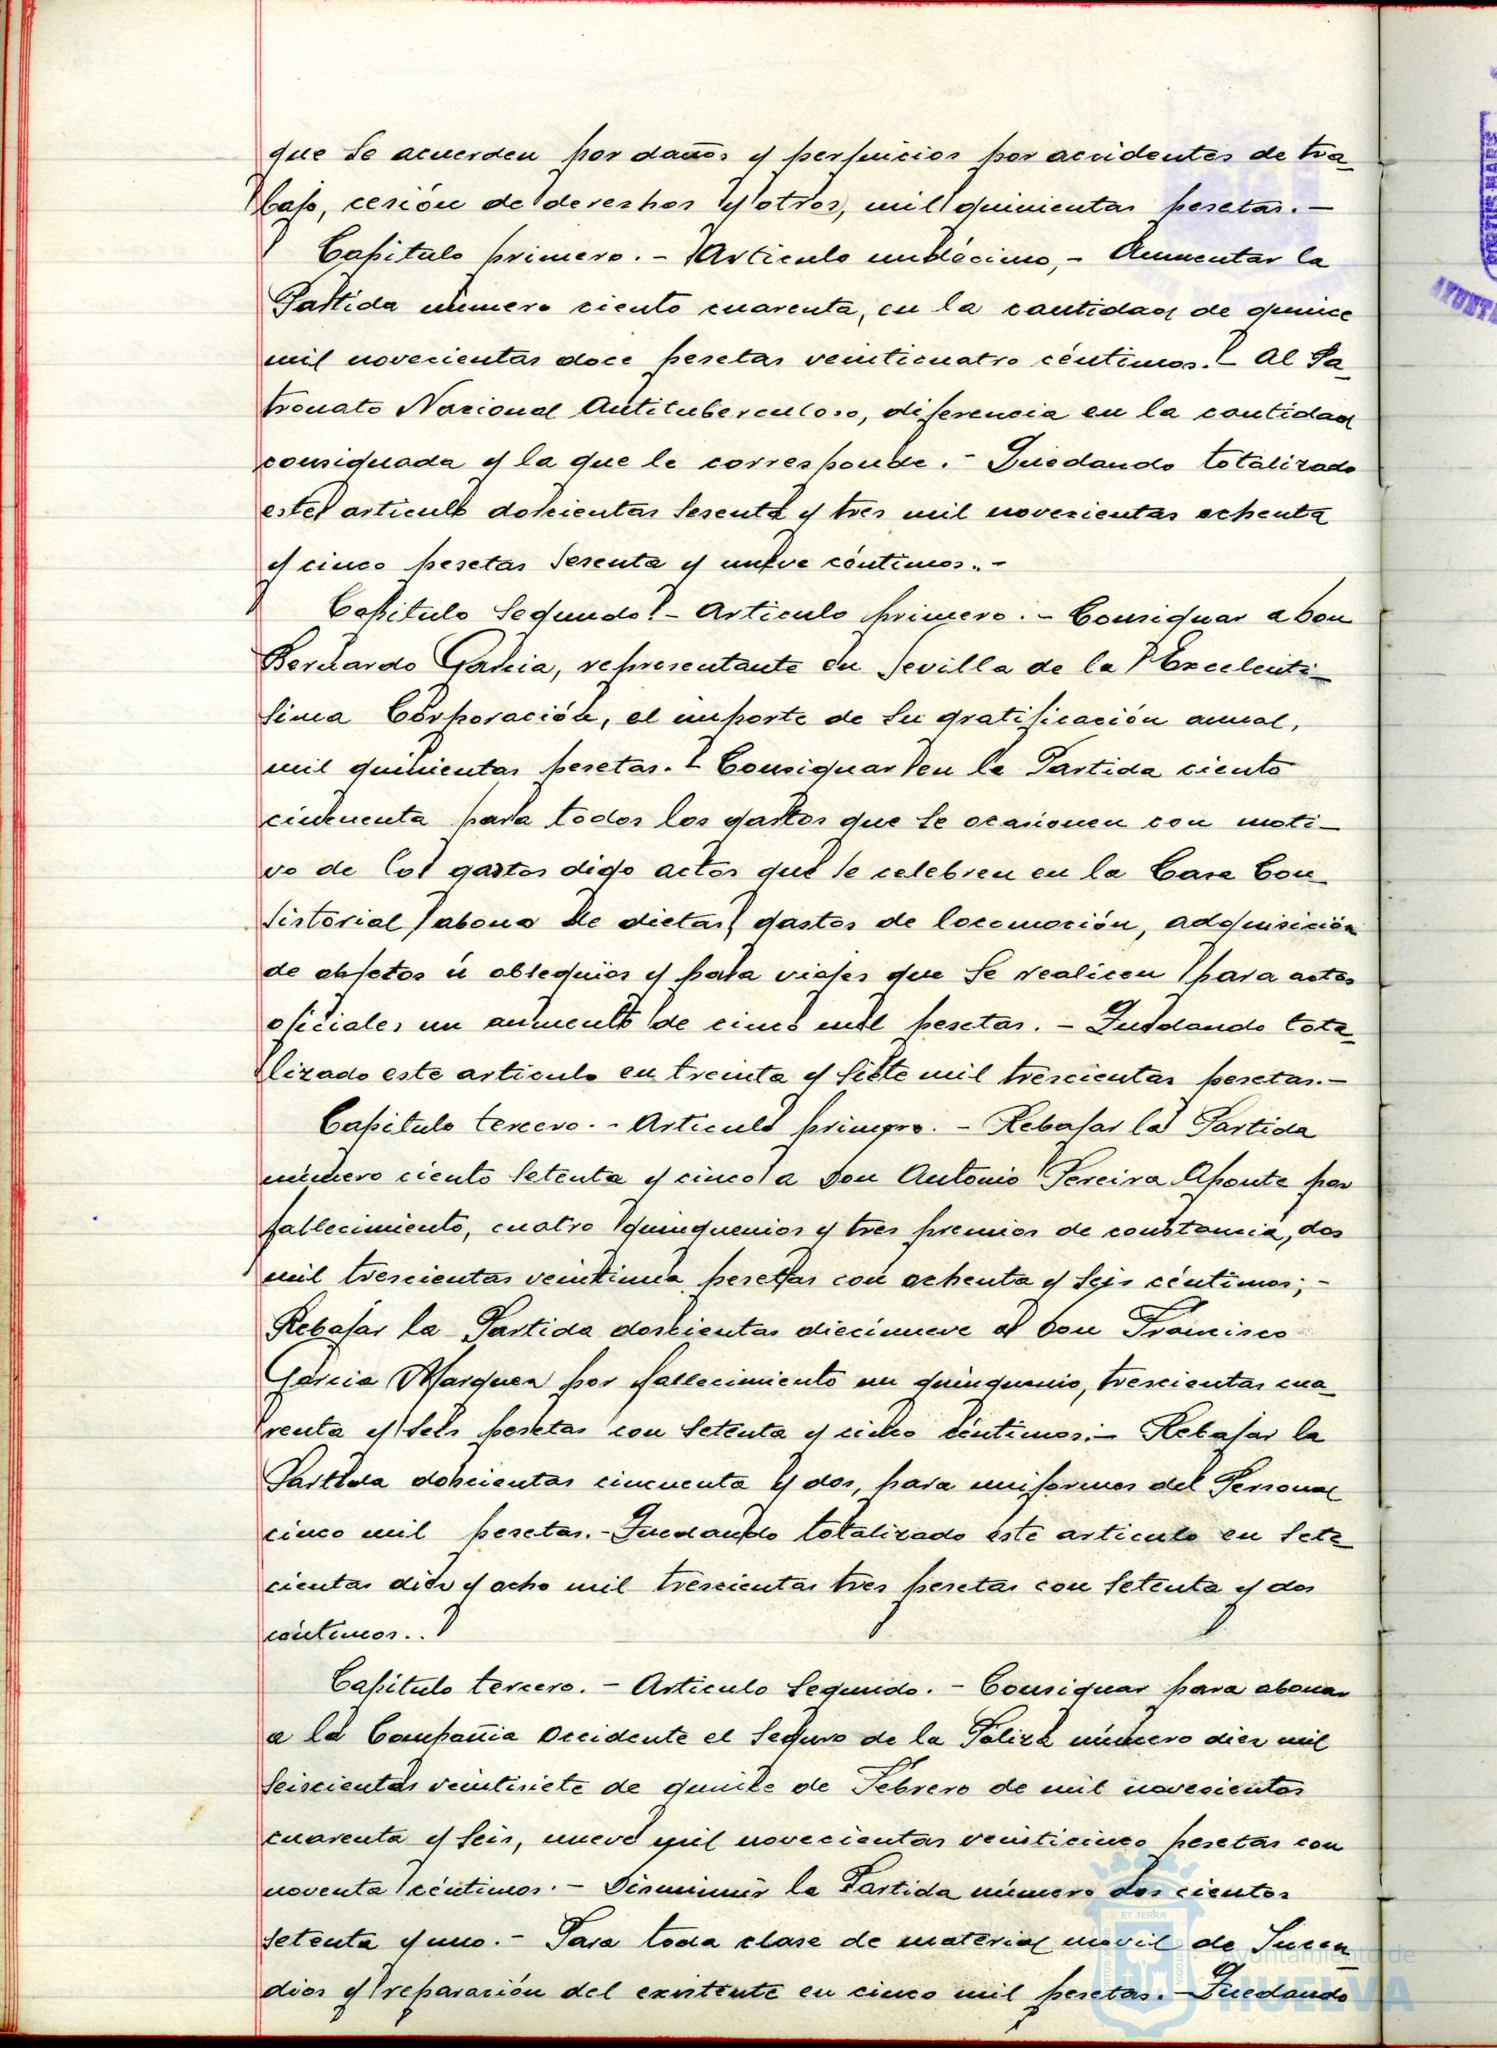 que se acuerden por daños y perjuicios por accidentes de tra-
bajo, cesión de derechos y otros, mil quinientas pesetas.-
Capitulo primero.- Articulo undécimo,- Aumentar la
Partida número ciento cuarenta, en la cantidad de quince
mil novecientas doce pesetas veinticuatro céntimos.- Al Pa-
tronato Nacional Antituberculoso, diferencia en la cantidad
consignada y la que le corresponde.- Quedando totalizado
este articulo doscientas sesenta y tres mil novecientas ochenta
y cinco pesetas sesenta y nueve céntimos.-
Capitulo Segundo.- Articulo primero.- Consignar a Don
Bernardo Garcia, representante en Sevilla de la Excelentí-
sima Corporación, el importe de su gratificación anual,
mil quinientas pesetas.- Consignar en la Partida ciento
cincuenta para todos los gastos que se ocasionen con moti-
vo de los gastos digo actos que se celebren en la Casa Con-
sistorial, abono de dietas, gastos de locomoción, adquisición
de objetos ú obsequios y para viajes que se realicen para actos
oficiales un aumento de cinco mil pesetas.- Quedando tota-
lizado este articulo en treinta y siete mil trescientas pesetas.-
Capitulo tercero.- Articulo primero.- Rebajar la Partida
número ciento setenta y cinco a Don Antonio Pereira Aponte por
fallecimiento, cuatro quinquenios y tres premios de constancia, dos
mil trescientas veintinueva pesetas con ochenta y seis céntimos;-
Rebajar la Partida doscientas diecinueve a Don Francisco
Garcia Marquez por fallecimiento un quinquenio, trescientas cua-
renta y seis pesetas con setenta y cinco céntimos;- Rebajar la
Partida doscientas cincuenta y dos, para uniformes del Personal
cinco mil pesetas.- Quedando totalizado este articulo en sete-
cientas diez y ocho mil trescientas tres pesetas con setenta y dos
céntimos..
Capitulo tercero.- Articulo Segundo.- Consignar para abonar
a la Compañia Occidente el Seguro de la Póliza número diez mil
seiscientas veintisiete de quince de Febrero de mil novecientos
cuarenta y seis, nueve mil novecientas veinticinco pesetas con
noventa céntimos.- Disminuir la Partida número dos cientos
setenta y uno.- Para toda clase de material movil de Incen-
dios y reparación del existente en cinco mil pesetas.- Quedando
Ayuntamiento de
HUELVA